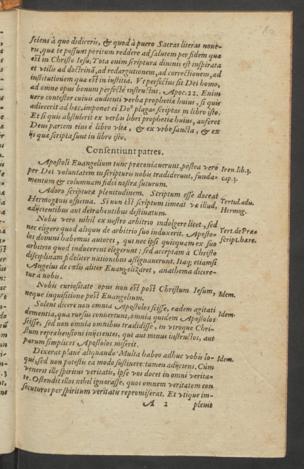 sciens à quo didiceris, & quod à puero Sacras literas noue-
ris, quæ te possunt peritum reddere ad salutem per fidem quæ
est in Christo Iesu, Tota enim scriptura diuinis est inspirata
et vtilis ad doctrinã, ad redargutionem, ad correctionem, ad
institutionem quæ est in iustitia. Vt perfectus sit Dei homo,
ad omne opus bonum perfectè instructus. Apoc. 22. Enim
vero contestor cuiuis audienti verba prophetiæ huius, si quis
adiecerit ad hæc, imponet ei De⁹ plagas scriptas in libro isto.
Et si quis abstulerit ex verbis libri prophetiæ huius, auferet
Deus partem eius è libro vitæ, & ex vrbe sancta, & ex
ijs quæ scripta sunt in libro isto.
Consentiunt patres.
Apostoli Euangelium tunc præconiauerunt, postea vero
per Dei voluntatem in scripturis nobis tradiderunt, funda-
mentum & columnam fidei nostræ futurum.
Iren. lib. 3.
cap. 1.
Adoro scripturæ plenitudinem. Scriptum esse doceat
Hermogenis officina. Si non est scriptum timeat væ illud,
adijcientibus aut detrahentibus destinatum.
Tertul. adu.
Hermog.
Nobis vero nihil ex nostro arbitrio indulgere licet, sed
nec eligere quod aliquis de arbitrio suo induxerit. Aposto-
los domini habemus autores, qui nec ipsi quicquam ex suo
arbitrio quod inducerent elegerunt, sed acceptam à Christo
disciplinam fideliter nationibus assignauerunt. Itaq; etiamsi
Angelus de cælis aliter Euangelizaret, anathema dicere-
tur a nobis.
Tert. de Præ
Script. hære.
Nobis curiositate opus non est post Christum Iesum,
neque inquisitione post Euangelium.
Idem.
Solent dicere non omnia Apostolos scisse, eadem agitati
dementia, qua rursus conuertunt, omnia quidem Apostolos
scisse, sed non omnia omnibus tradidisse, in vtroque Chri-
stum reprehensioni inijcientes, qui aut minus instructos, aut
parum simplices Apostolos miserit.
Idem.
Dixerat planè aliquando Multa habeo adhuc vobis lo-
qui, sed non potestis ea modo sustinere: tamen adijciens, Cum
venerit ille spiritus veritatis, ipse vos docet in omni verita-
te. Ostendit illos nihil ignorasse, quos omnem veritatem con-
secuturos per spiritum veritatis repromiserat. Et vtique im-
Idem.
A 2
pleuit